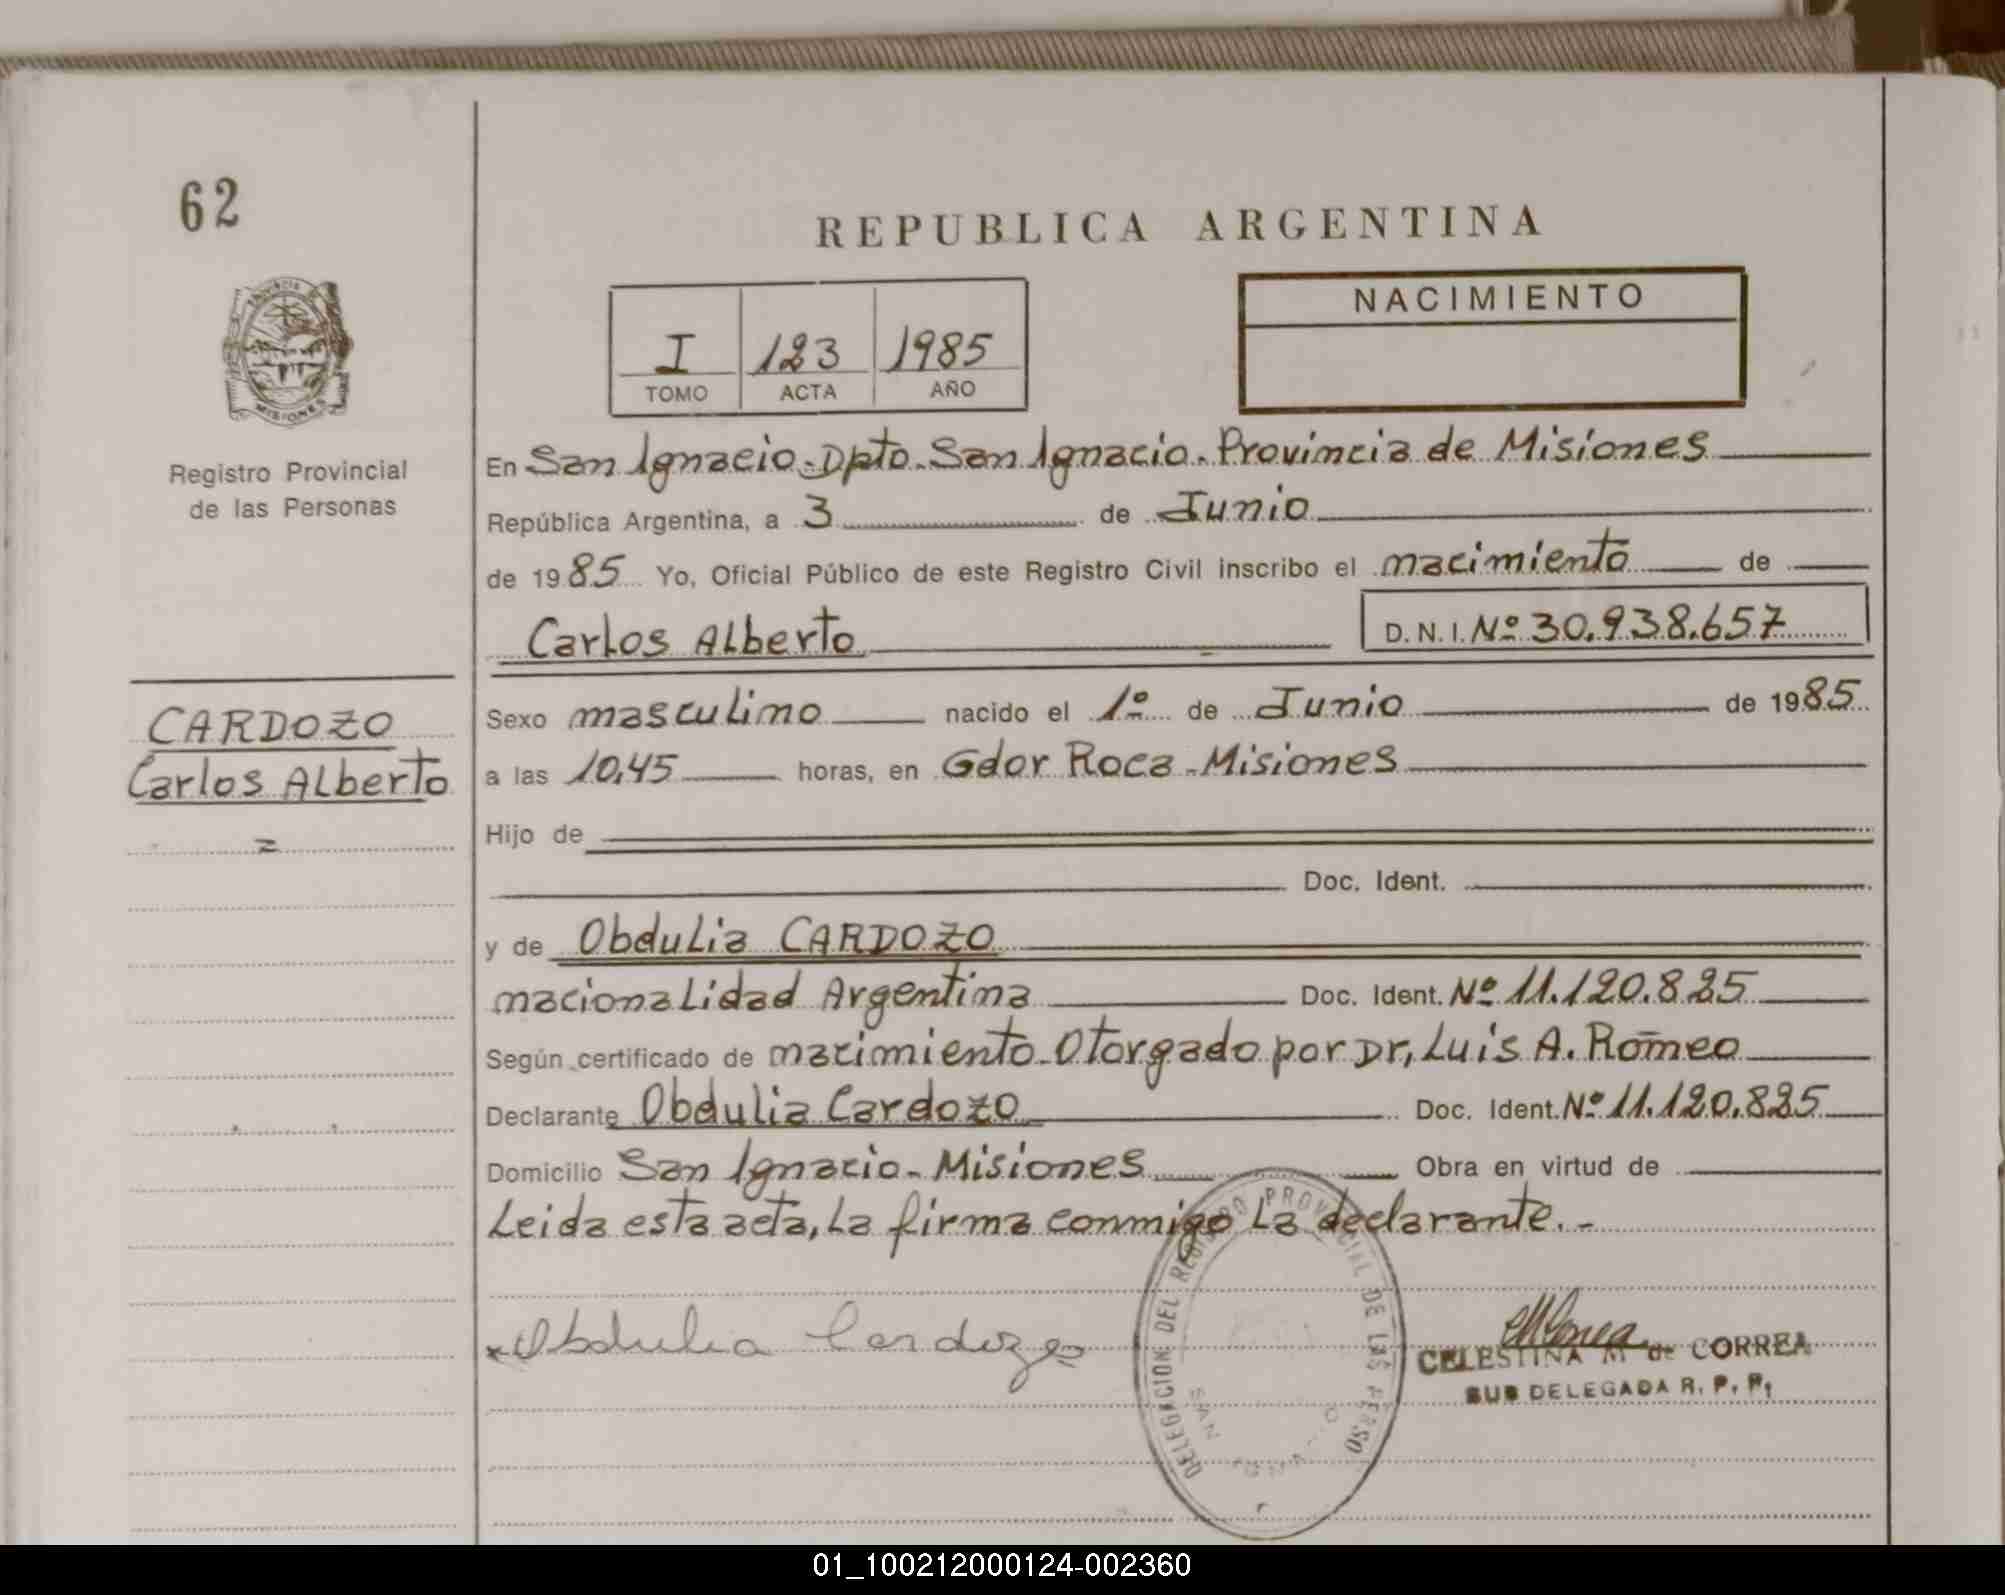 62
REPUBLICA ARGENTINA
PROVINCIA DE
MISIONES
Registro Provincial
de las Personas
I 123 1985
TOMO ACTA AÑO
NACIMIENTO
En San Ignacio-Dpto. San Ignacio. Provincia de Misiones
República Argentina, a 3 de Junio
de 1985 Yo, Oficial Público de este Registro Civil inscribo el nacimiento de
Carlos Alberto D.N.I. Nº 30.938.657
CARDOZO
Carlos Alberto
=
Sexo masculino nacido el 1º de Junio de 1985
a las 10,45 horas, en Gdor Roca - Misiones
Hijo de
Doc. Ident.
y de Obdulia CARDOZO
nacionalidad Argentina Doc. Ident. Nº 11.120.825
Según certificado de nacimiento Otorgado por Dr, Luis A. Romeo
Declarante Obdulia Cardozo Doc. Ident. Nº 11.120.825
Domicilio San Ignacio - Misiones Obra en virtud de
Leida esta acta, La firma conmigo La declarante.-
Obdulia Cardozo
DELEGACION DEL REGISTRO PROVINCIAL DE LAS PERSO
SAN
CELESTINA M de CORREA
SUB DELEGADA R. P. P.
01_100212000124-002360